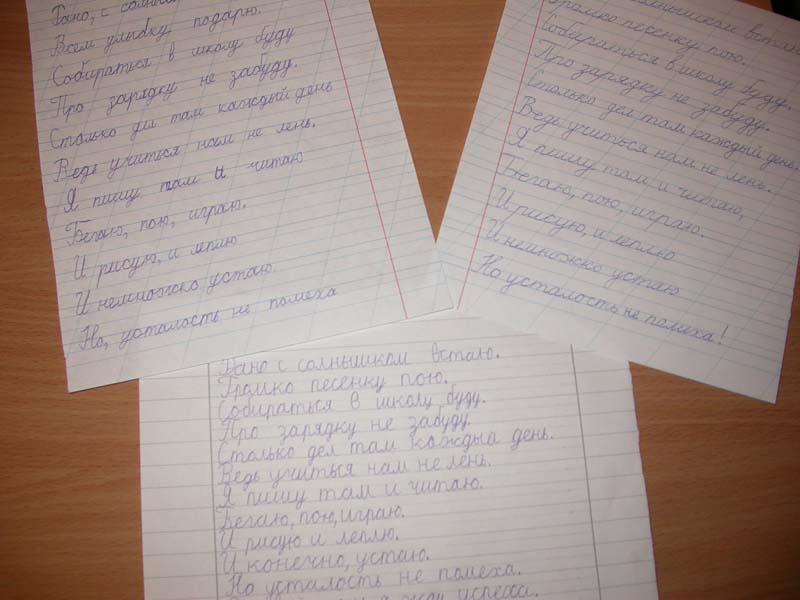 Рано, с солны
Всем улыбку подарю.
Собираться в школу буду
Про зарядку не забуду.
Столько дел там каждый день
Ведь учиться нам не лень.
Я пишу там и читаю
Бегаю, пою, играю.
И рисую, и леплю
И немножко устаю.
Но, усталость не помеха
солнышком встаю
Громко песенку пою.
Собираться в школу буду.
Про зарядку не забуду.
Столько дел там каждый день.
Ведь учиться нам не лень.
Я пишу там и читаю,
Бегаю, пою, играю.
И рисую, и леплю
И немножко устаю
Но усталость не помеха!
Рано с солнышком встаю.
Громко песенку пою.
Собираться в школу буду.
Про зарядку не забуду.
Столько дел там каждый день.
Ведь учиться нам не лень.
Я пишу там и читаю.
Бегаю, пою, играю.
И рисую и леплю.
И конечно, устаю.
Но усталость не помеха.
жду успеха.